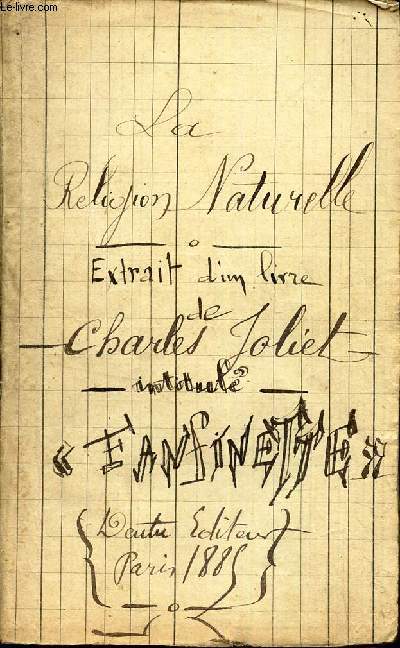 Le-livre.com
La
Religion Naturelle
Extrait d'un livre
de
Charles Joliet
intitulé
« FANFINETTE »
Dentu Editeur
Paris 1885